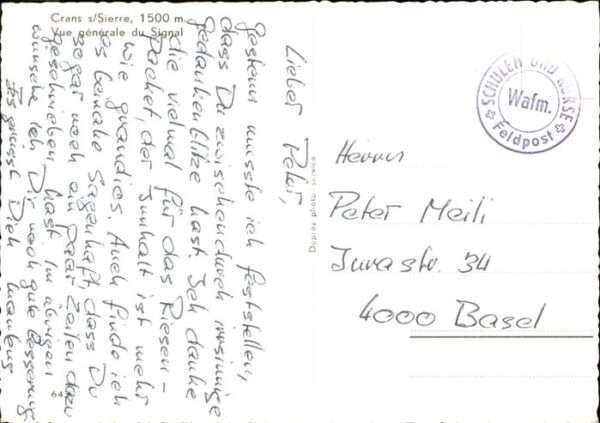 Crans s/Sierre, 1500 m
Vue générale du Signal
Lieber Peter,
gestern musste ich feststellen,
dass Du zwischendurch irrsinnige
Gedankenblitze hast. Ich danke
Dir vielmal für das Riesen-
packet, der Inhalt ist mehr
wie grandios. Auch finde ich
es beinahe Sagenhaft, dass Du
sogar noch ein paar Zeilen dazu
geschrieben hast. Im übrigen
wünsche ich Dir noch gute Besserung
Es grüsst Dich
SCHULEN UND KURSE
Wafm.
Feldpost
Herrn
Peter Meili
Jurastr. 34
4000 Basel